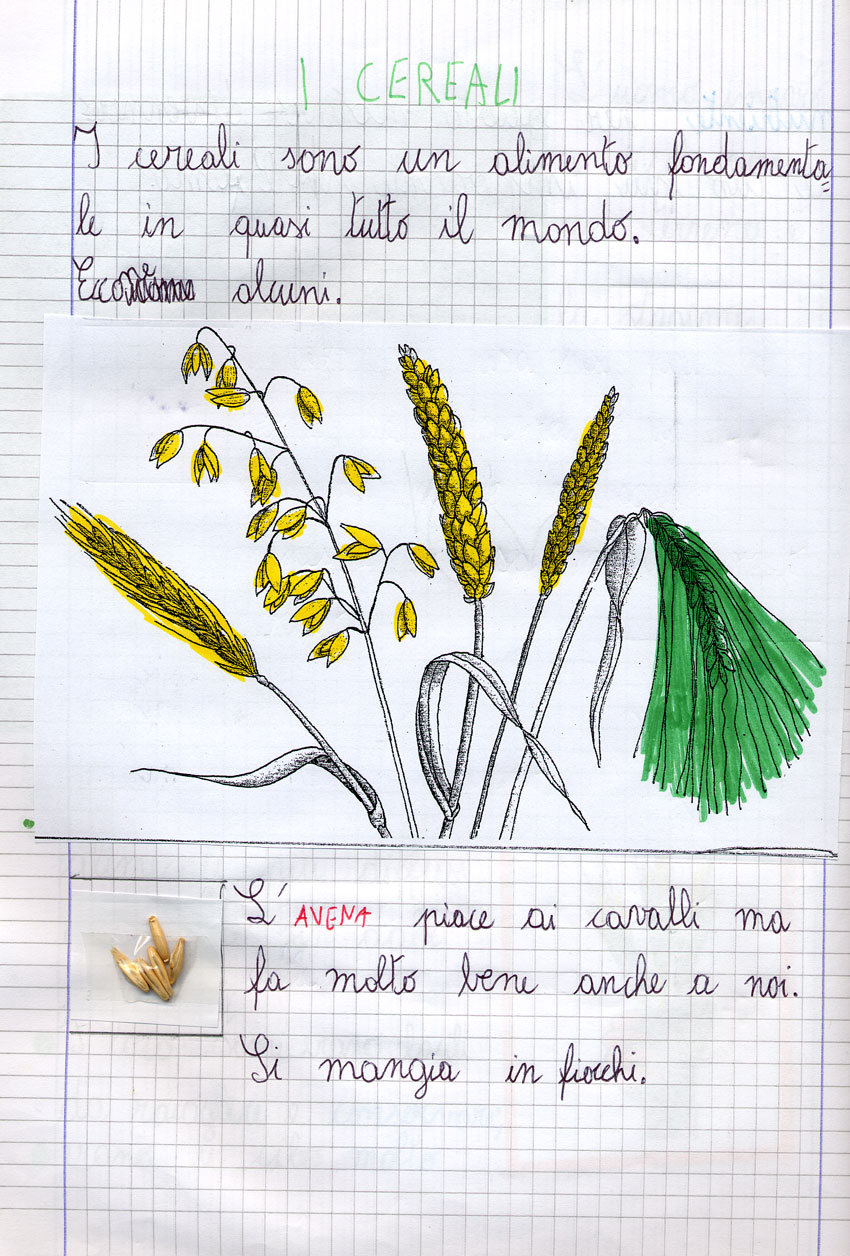 I CEREALI
I cereali sono un alimento fondamenta=
le in quasi tutto il mondo.
Ecco alcuni.
L'AVENA piace ai cavalli ma
fa molto bene anche a noi.
Si mangia in fiocchi.